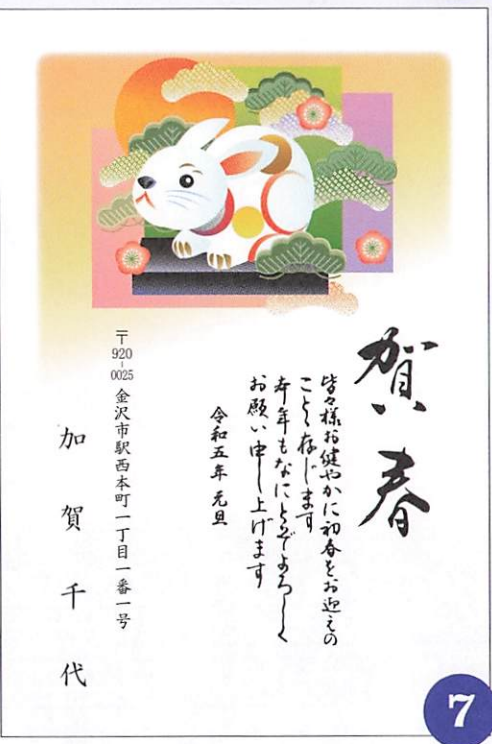 賀春
皆々様お健やかに初春をお迎えの
ことと存じます
本年もなにとぞよろしく
お願い申し上げます
令和五年 元旦
〒920-0025 金沢市駅西本町一丁目一番一号
加賀千代
7